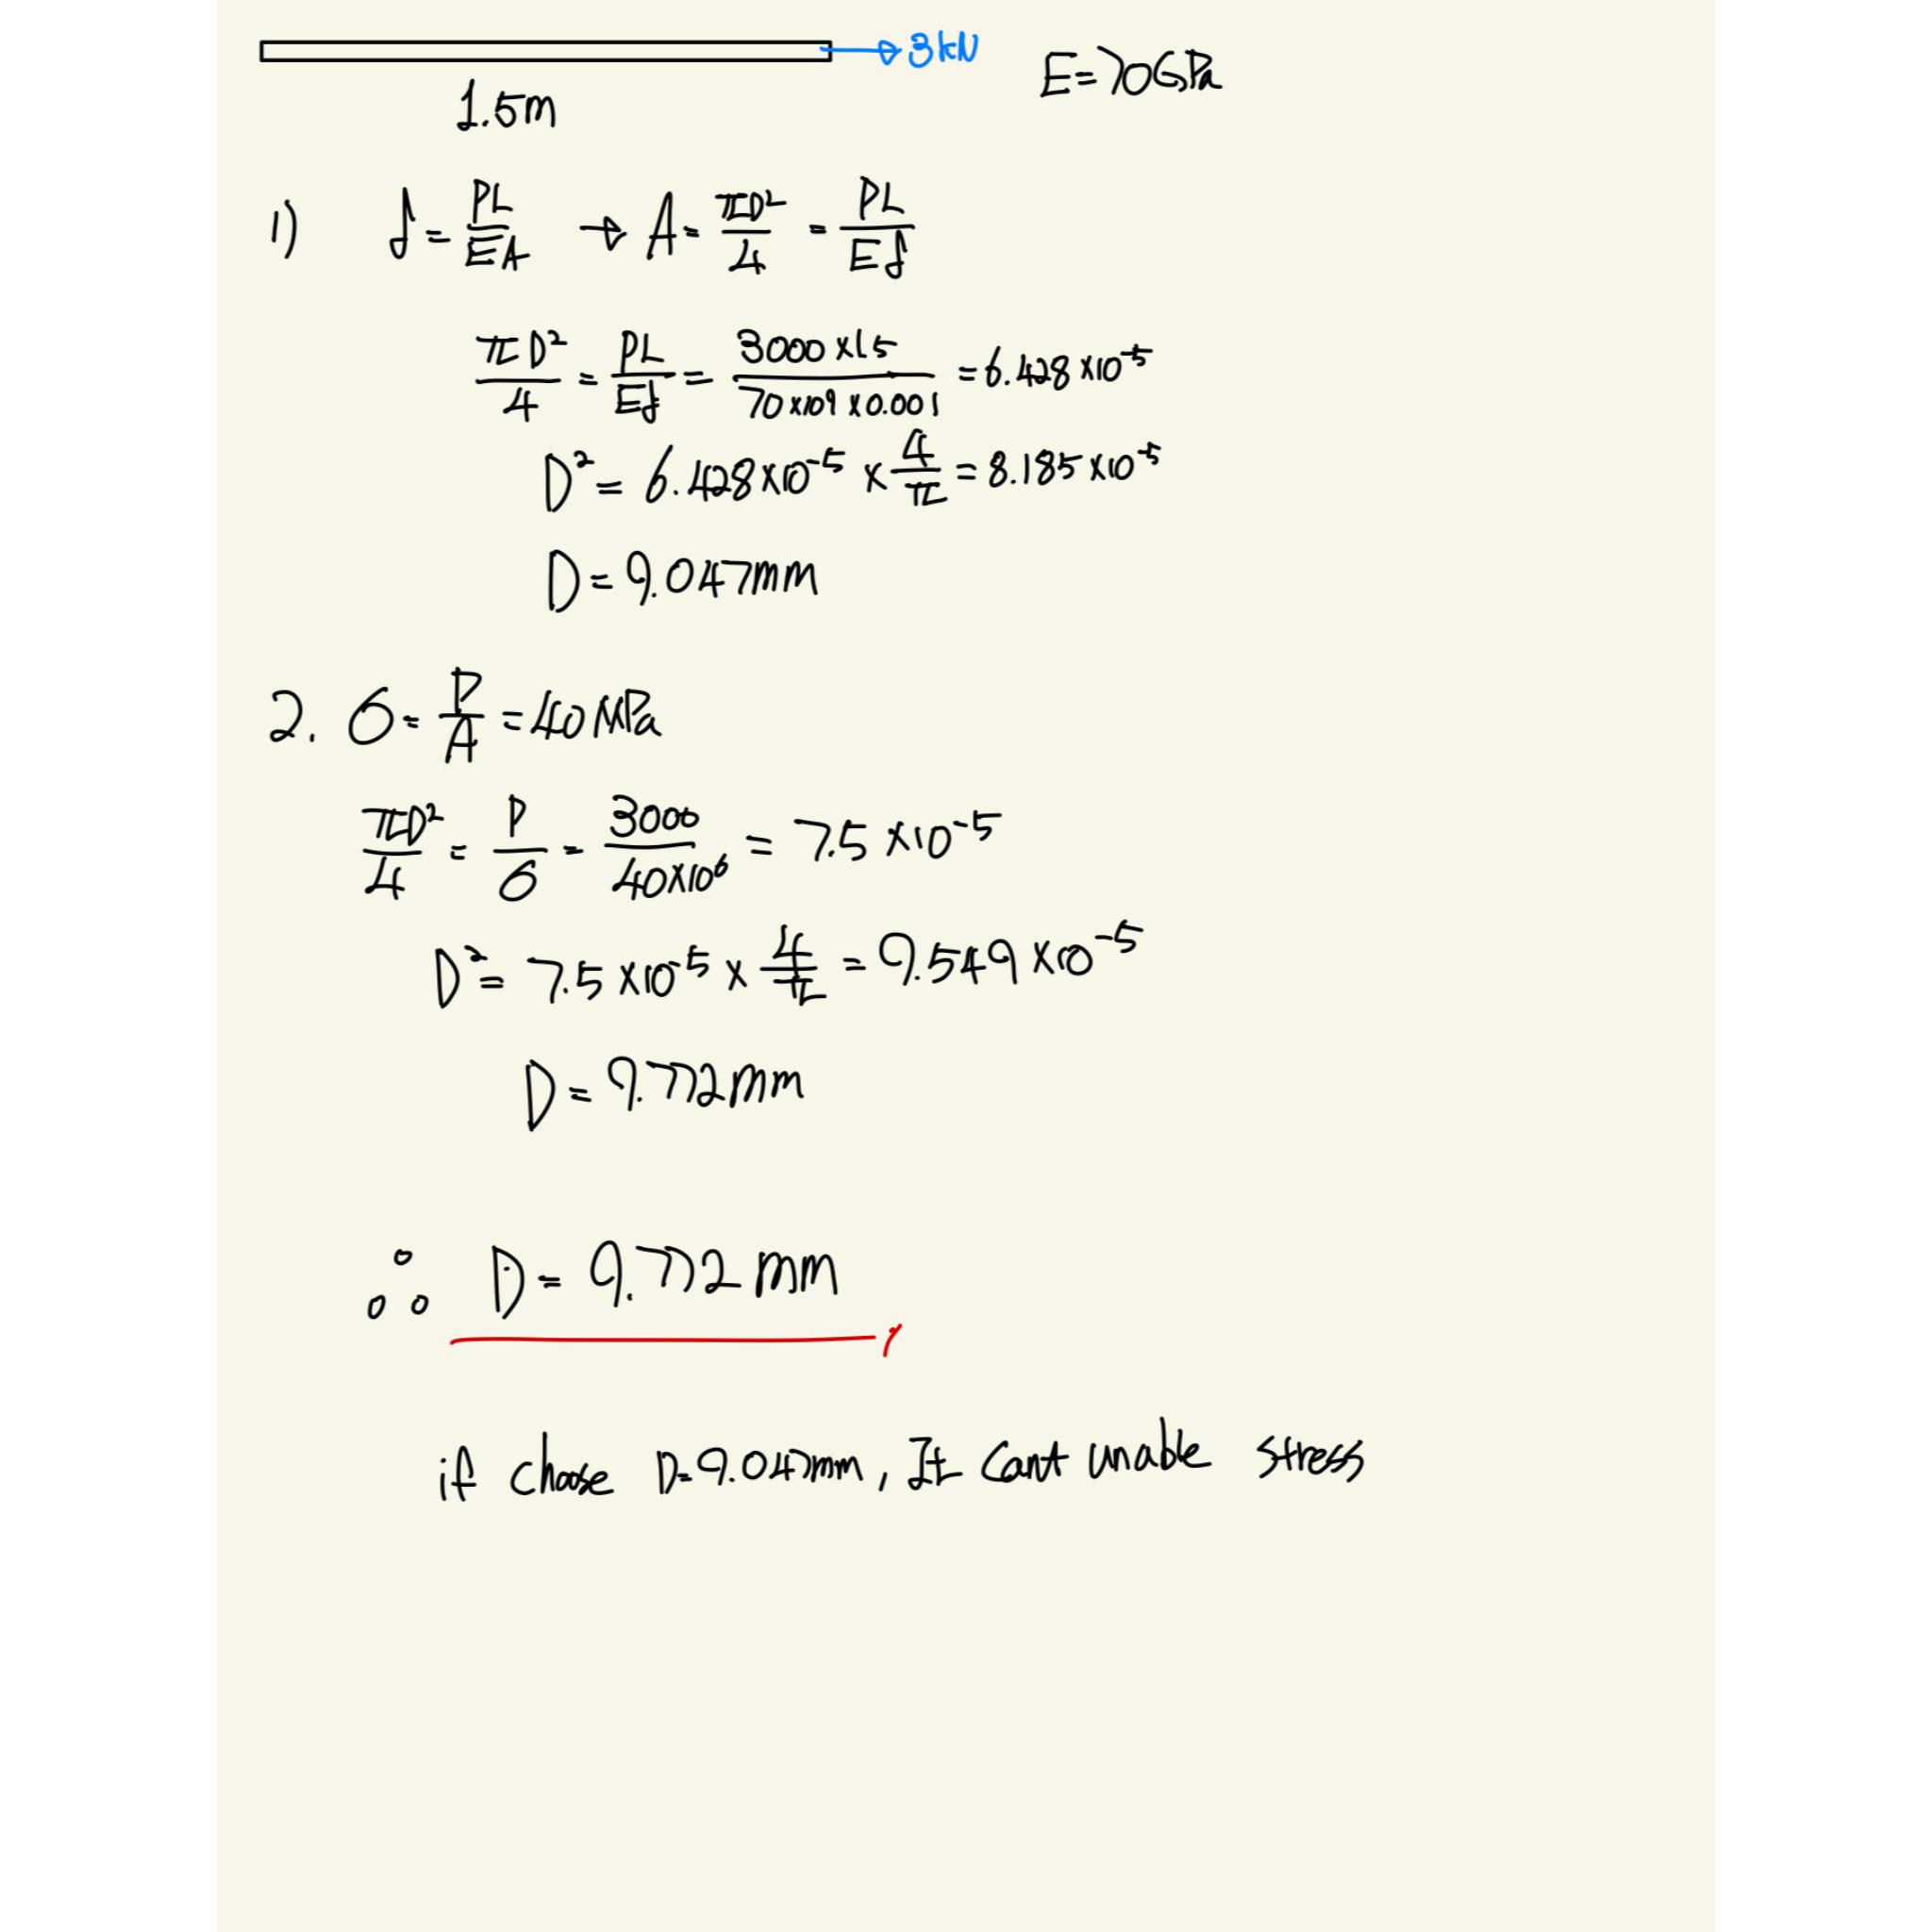 3kN
E=70GPa
1.5m
1) δ = PL/EA → A = πD²/4 = PL/Eδ
πD²/4 = PL/Eδ = 3000×1.5/70×10⁹×0.001 = 6.428×10⁻⁵
D² = 6.428×10⁻⁵ × 4/π = 8.185×10⁻⁵
D = 9.047mm
2. σ = P/A = 40MPa
πD²/4 = P/σ = 3000/40×10⁶ = 7.5×10⁻⁵
D² = 7.5×10⁻⁵ × 4/π = 9.549×10⁻⁵
D = 9.772mm
∴ D = 9.772mm
if choose D=9.047mm, It Cant unable stress